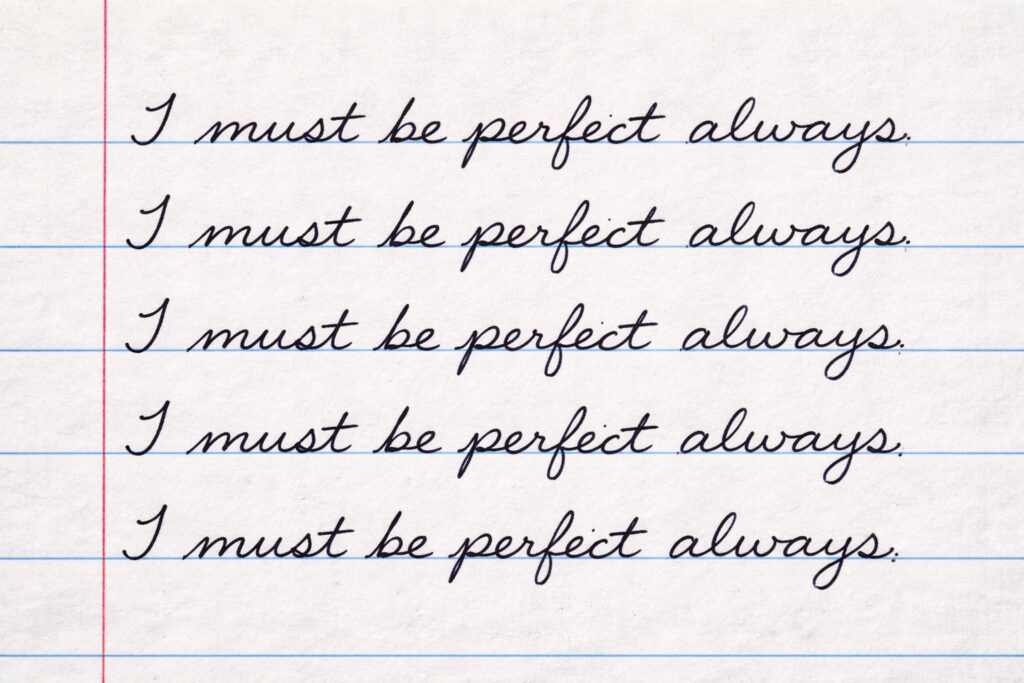 I must be perfect always.
I must be perfect always.
I must be perfect always.
I must be perfect always.
I must be perfect always.